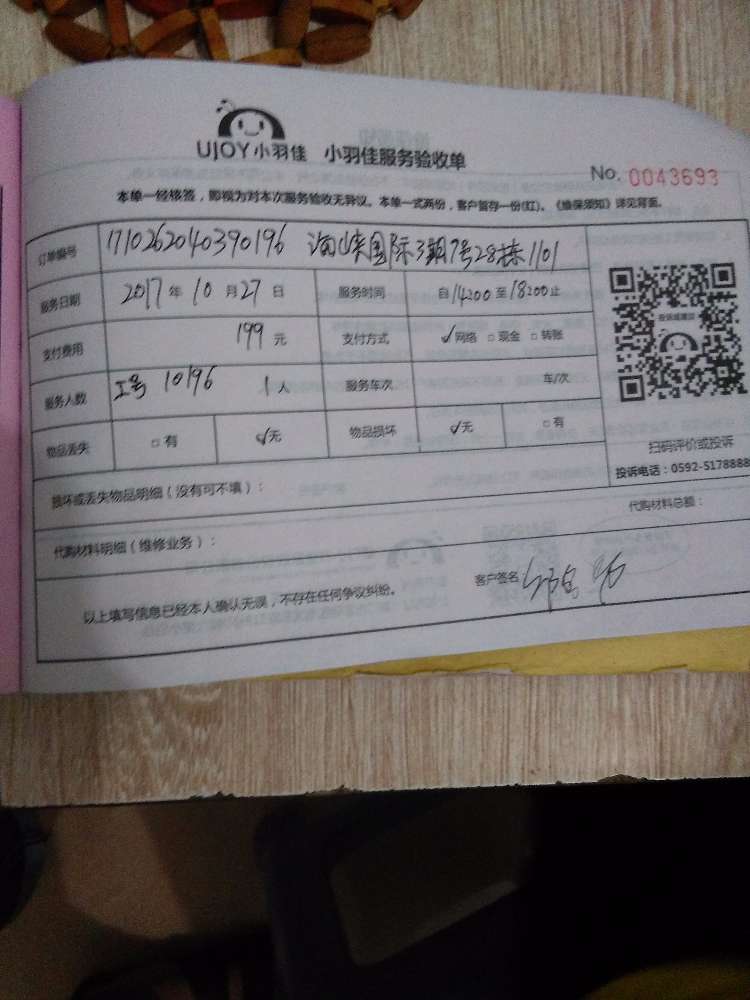 UJOY小羽佳 小羽佳服务验收单
No. 0043693
本单一经核签，即视为对本次服务验收无异议。本单一式两份，客户留存一份(红)。《维保须知》详见背面。
订单编号 1710262040390196 国际3期7号28栋1101
服务日期 2017年10月27日 服务时间 自14:00至18:00止
支付费用 199元 支付方式 ✓网络 □现金 □转账
服务人数 工号 10196 1人 服务车次 车/次
物品丢失 □有 ✓无 物品损坏 ✓无 □有
投诉或建议
扫码评价或投诉
投诉电话：0592-5178888
损坏或丢失物品明细（没有可不填）：
代购材料明细（维修业务）： 代购材料总额：
以上填写信息已经本人确认无误，不存在任何争议纠纷。 客户签名